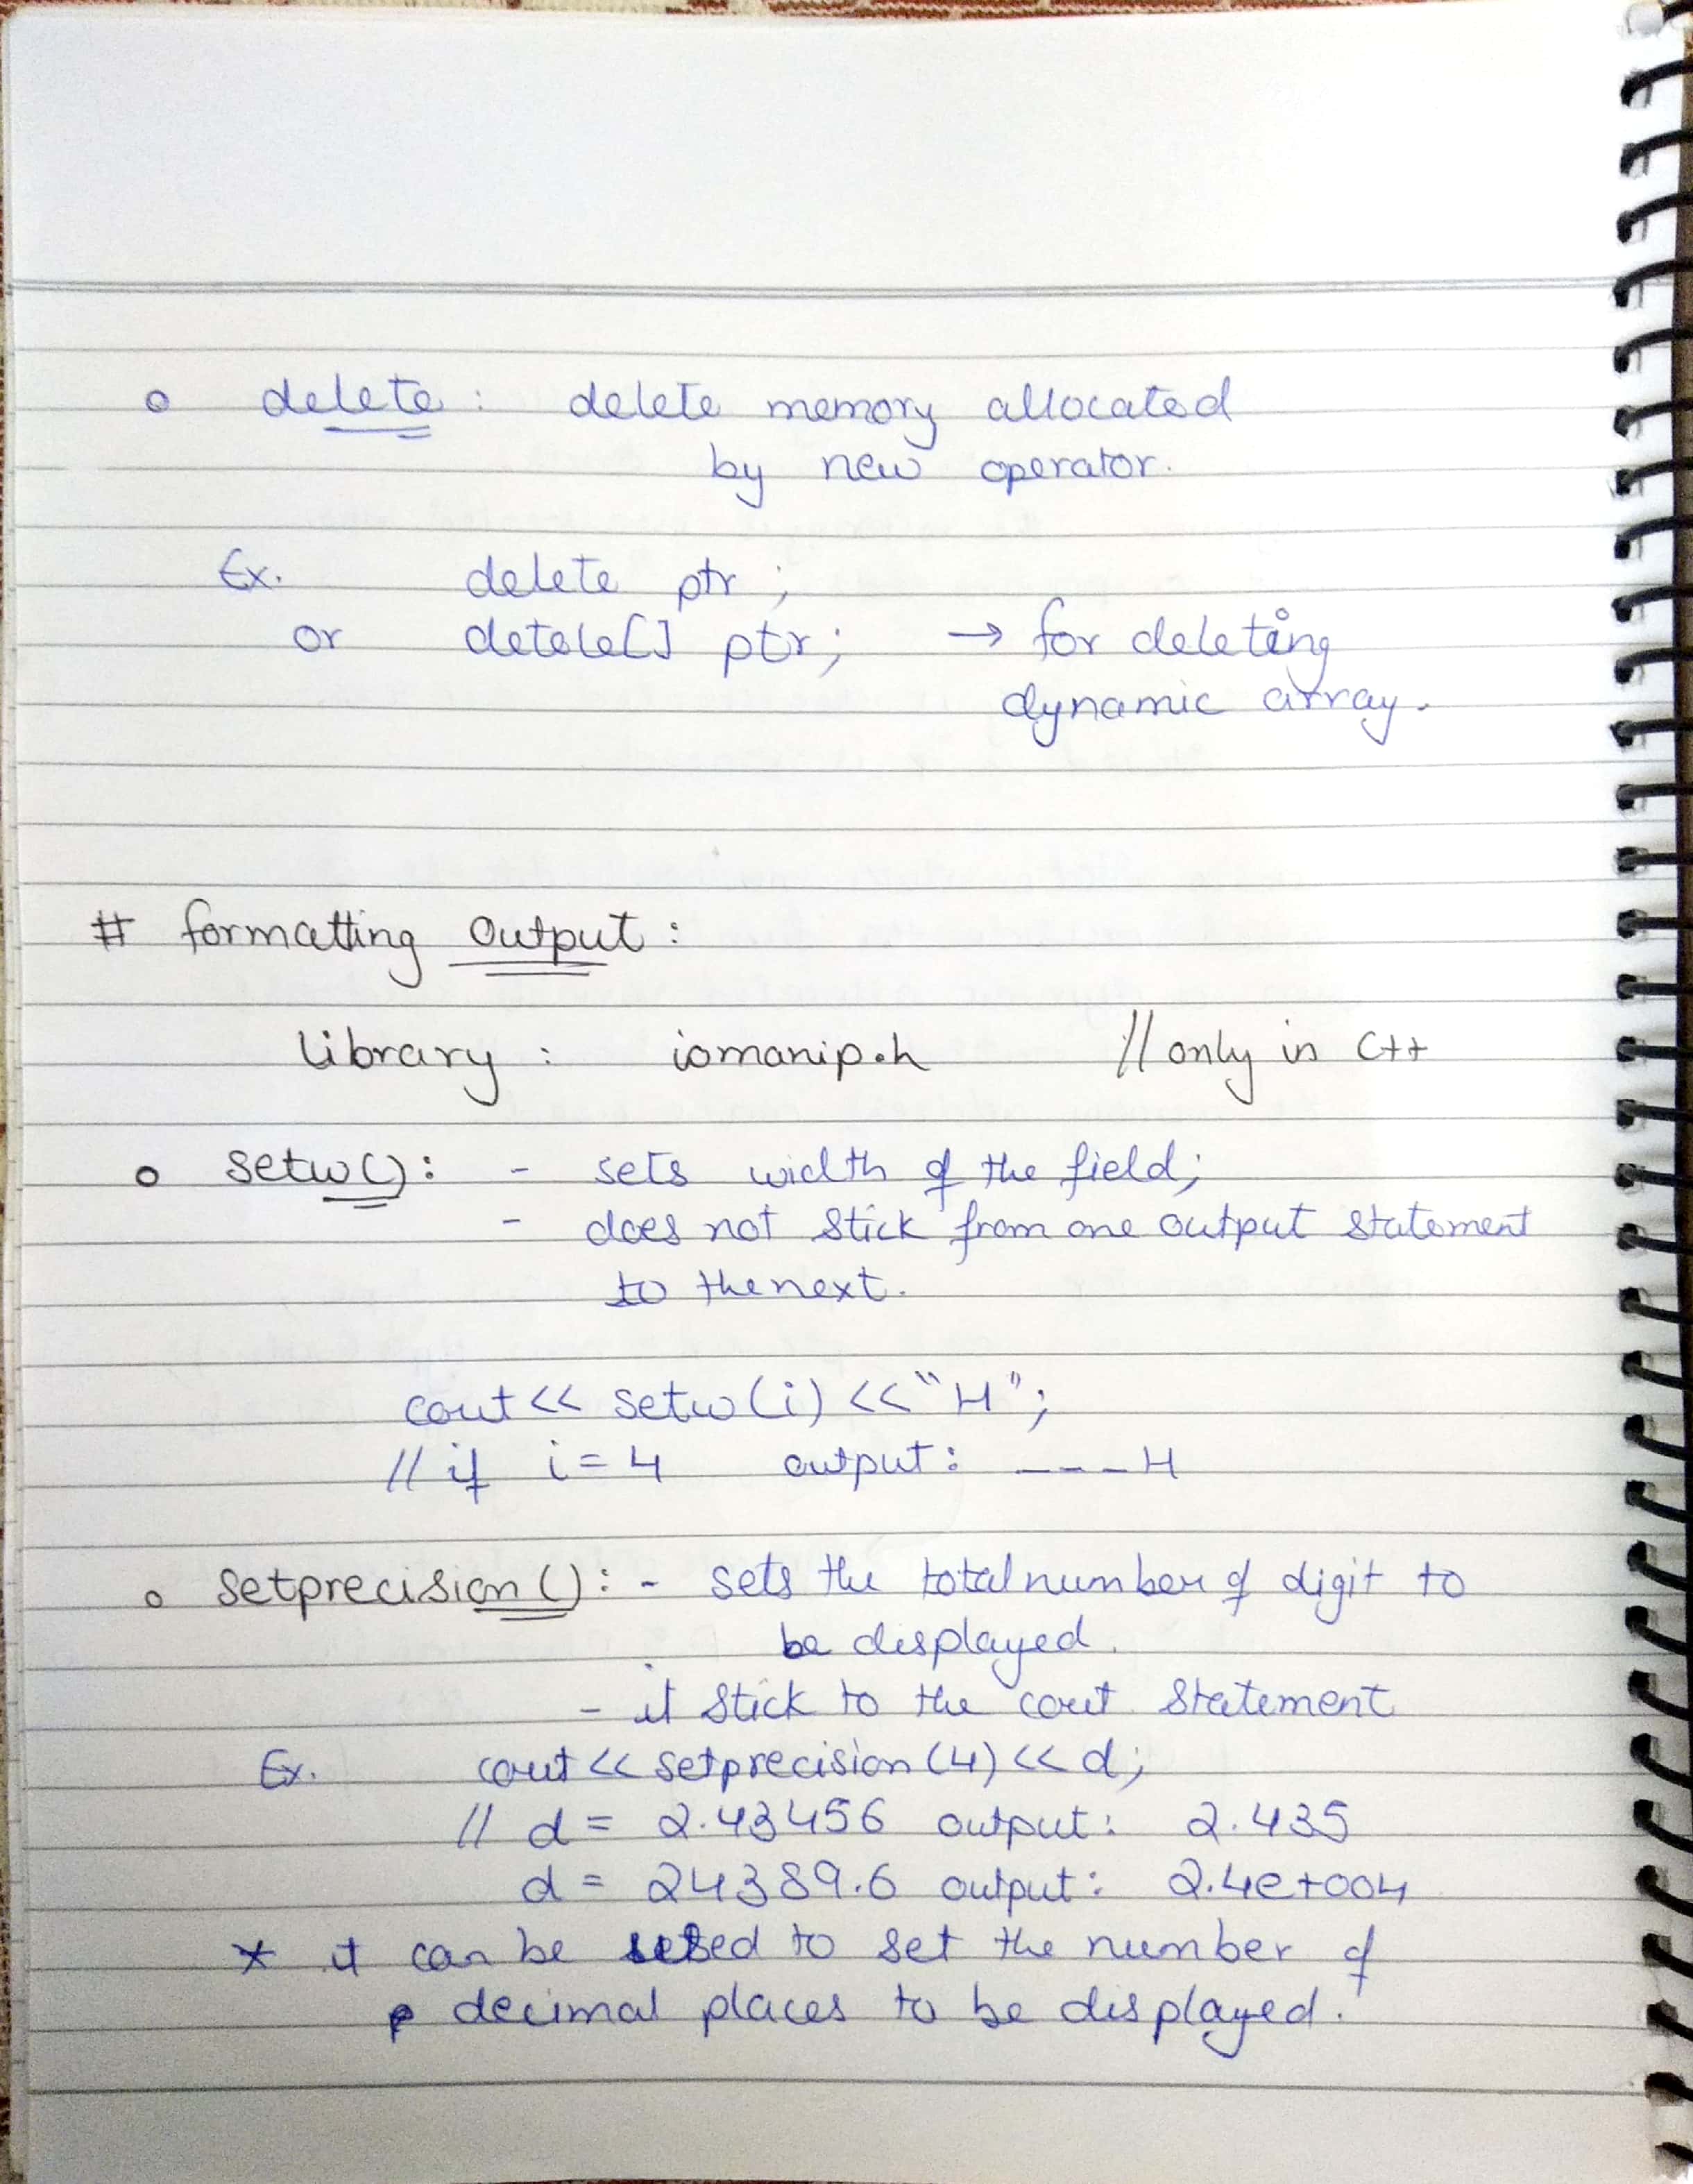 o delete : delete memory allocated
by new operator.
Ex. delete ptr ;
or detele[] ptr; → for deleting
dynamic array.
# formatting Output :
library : iomanip.h // only in C++
o setw() : - sets width of the field;
- does not stick from one output statement
to the next.
cout << setw(i) << "H";
// if i = 4 output : _ _ _ H
o setprecision() : - sets the total number of digit to
be displayed.
- it stick to the cout statement
Ex. cout << setprecision(4) << d;
// d = 2.43456 output : 2.435
d = 24389.6 output : 2.4e+004
* it can be used to set the number of
decimal places to be displayed.